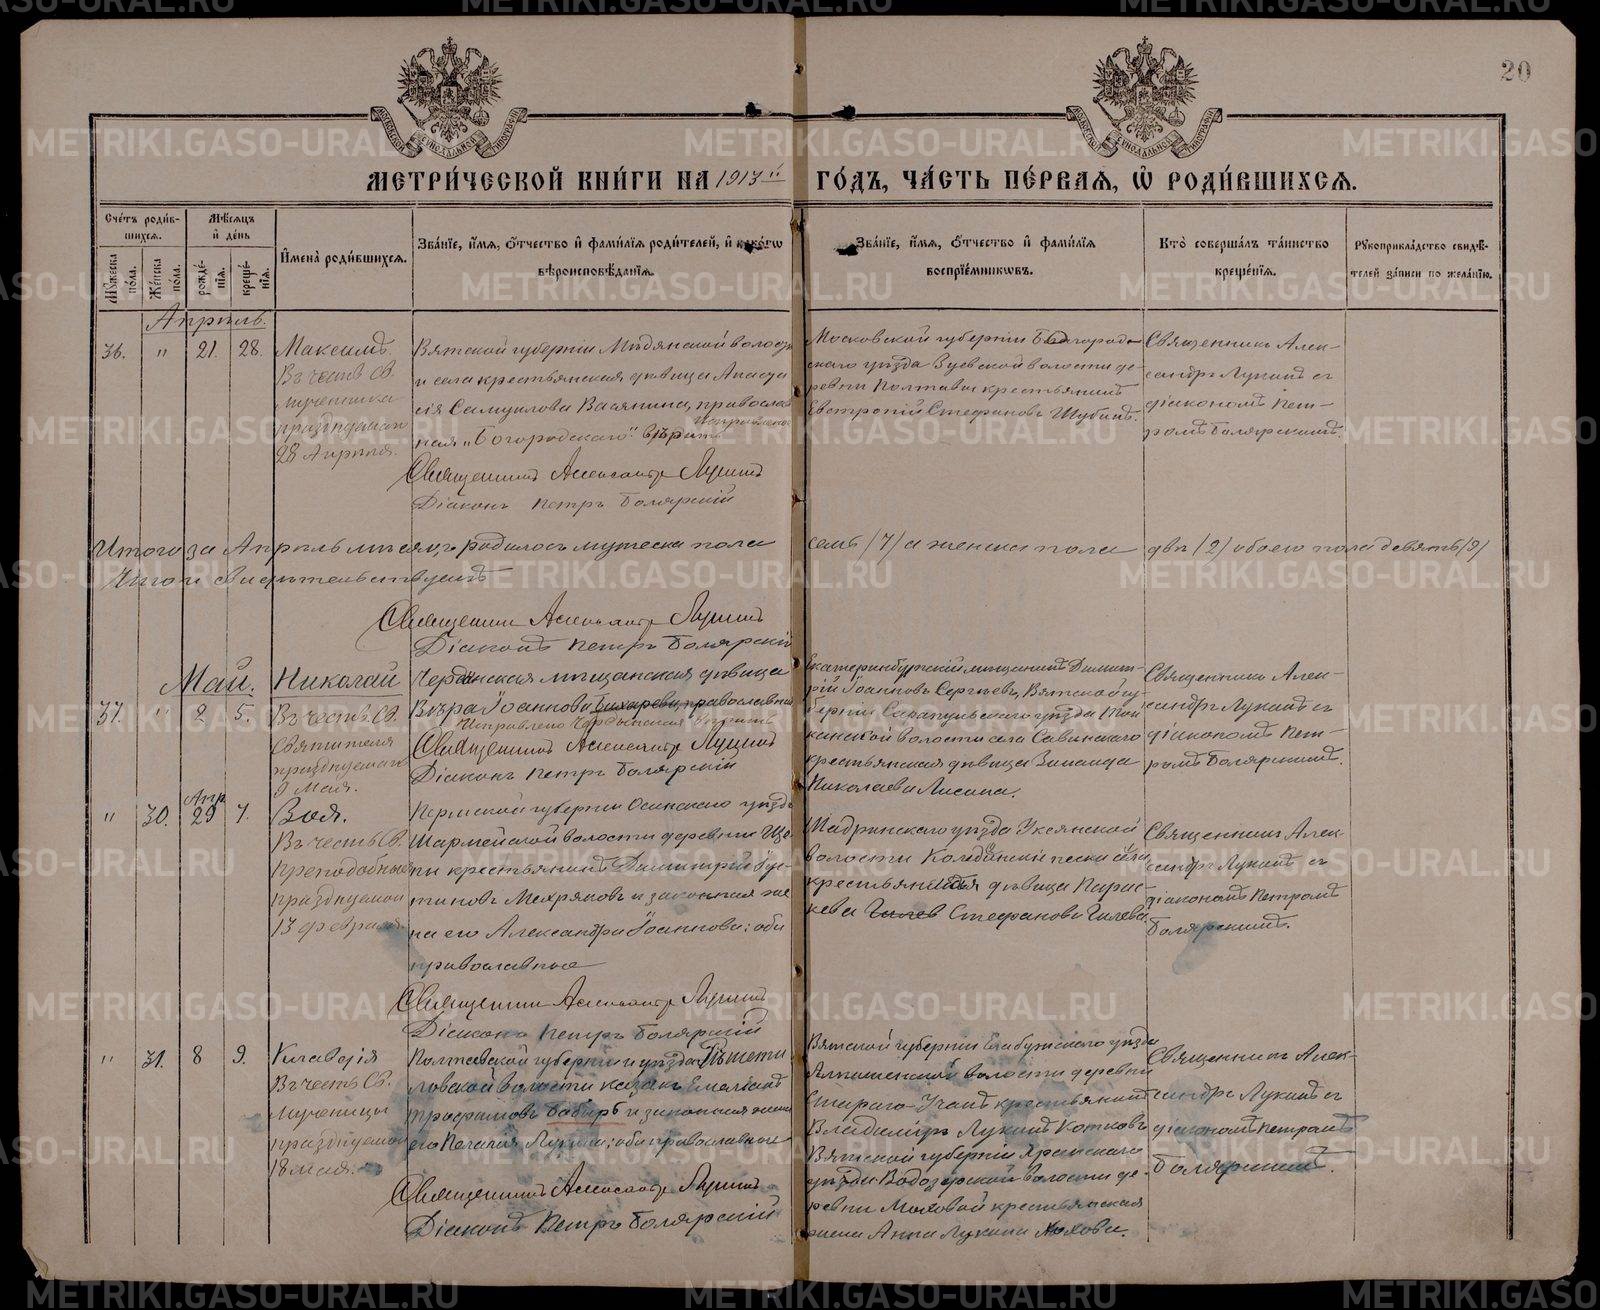 20
МЕТРИ́ЧЕСКОЙ КНИ́ГИ НА 1913 й ГО́ДЪ, ЧА́СТЬ ПЕ́РВАЯ, Ѡ҆ РОДИ́ВШИХСЯ.
Сче́тъ роди́вшихся.
Мꙋ́жеска по́ла.
Же́нска по́ла.
Мѣ́сяцъ и҆ де́нь
рожде́нїя.
креще́нїя.
И҆мена̀ роди́вшихся.
Зва́нїе, и҆́мя, ѻ҆́тчество и҆ фами́лїя роди́телей, и҆ како́гѡ
вѣроисповѣ́данїя.
Зва́нїе, и҆́мя, ѻ҆́тчество и҆ фами́лїя
воспрїе́мникѡвъ.
Кто̀ соверша́лъ та́инство
креще́нїя.
Рꙋкоприкла́дство свидѣ́телей за́писи по жела́нїю.
Апрѣль.
36. " 21. 28.
Максимъ.
Въ честь Св.
мученика
празднуемаго
28 Апрѣля.
Вятской губерніи Мѣдянской волости
и села крестьянская дѣвица Анаста
сія Самуилова Васянина, православ
ная „Богородскаго" вѣрить
Священникъ Александръ Лукинъ
Діаконъ Петръ Болярскій
Московской губерніи Богород-
скаго уѣзда Зуевской волости де-
ревни Полтавы крестьянинъ
Евстропій Стефановъ Шубинъ.
Священникъ Алек-
сандръ Лукинъ съ
діакономъ Пет-
ромъ Болярскимъ.
Итого за Апрѣль мѣсяцъ родилось мужеска пола семь /7/ а женска пола двѣ /2/ обоего пола девять /9/
Что и свидѣтельствуемъ
Священникъ Александръ Лукинъ
Діаконъ Петръ Болярскій
Май.
37. " 2. 5.
Николай
Въ честь Св.
Святителя
празднуемаго
9 Мая.
Чердынская мѣщанская дѣвица
Вѣра Іоаннова православная
Исправлено Чердынская вѣрить
Священникъ Александръ Лукинъ
Діаконъ Петръ Болярскій
Екатеринбургскій мѣщанинъ Димит-
рій Іоанновъ Сергѣевъ, Вятской гу-
берніи Сарапульскаго уѣзда
волости села Савинскаго
крестьянская дѣвица Зинаида
Николаева Лисина.
Священникъ Алек-
сандръ Лукинъ съ
діакономъ Пет-
ромъ Болярскимъ.
" 30. Апр. 29 7.
Зоя.
Въ честь Св.
Преподобныя
празднуемой
13 февраля.
Пермской губерніи Осинскаго уѣзда
волости деревни
крестьянинъ Димитрій Іус-
тиновъ Мехряковъ и законная же
на его Александра Іоаннова; оба
православные
Священникъ Александръ Лукинъ
Діаконъ Петръ Болярскій
Шадринскаго уѣзда Уксянской
волости пески села
крестьянская дѣвица Парас-
кева Гилев Стефанова Гилева
Священникъ Алек-
сандръ Лукинъ съ
діакономъ Петромъ
Болярскимъ.
" 31. 8 9.
Клавдія
Въ честь Св.
Мученицы
празднуемой
18 мая.
Полтавской губерніи и уѣзда Рѣшети
ловской волости казакъ Емеліанъ
Трофимовъ Бабырь и законная жена
его Пелагія Лукина; оба православные
Священникъ Александръ Лукинъ
Діаконъ Петръ Болярскій
Вятской губерніи Елабужскаго уѣзда
волости деревни
Стараго крестьянинъ
Владиміръ Лукинъ Котковъ
Вятской губерніи Яранскаго
уѣзда Водозерской волости де-
ревни Моховой крестьянская
жена Анна Лукина Мохова.
Священникъ Алек-
сандръ Лукинъ съ
діакономъ Петромъ
Болярскимъ.
METRIKI.GASO-URAL.RU